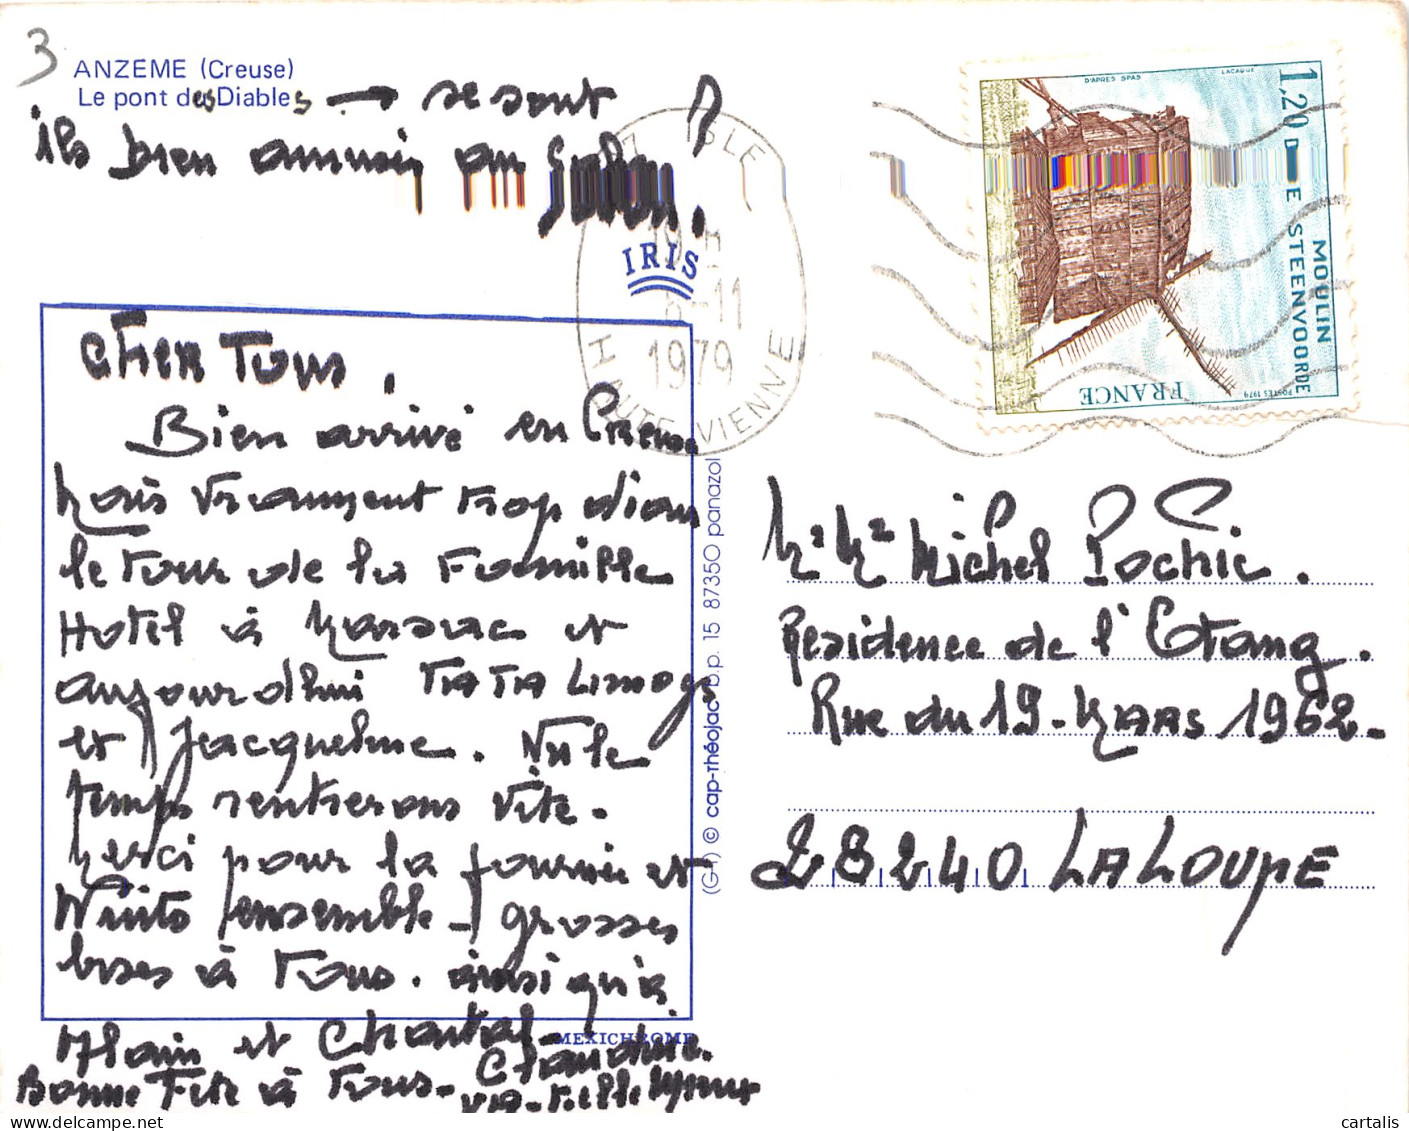 3
ANZEME (Creuse)
Le pont des Diables → se sont
ils bien amusés au ?
IRIS
ISLE
6-11
1979
HAUTE-VIENNE
D'APRES SPAS
LACAQUE
1,20
MOULIN
DE STEENVOORDE
POSTES 1979
FRANCE
Cher Tous,
Bien arrivé en Creuse
Mais vraiment trop dians
le Tour de la Famille
Hotel à et
aujourd'hui TATA Limoges
et Jacqueline. Vu le
temps rentrerons vite.
Merci pour la journée et
Nuits ensemble - grosses
bises à Tous. ainsi qu'à
Alain et Chantal
Claudine.
Bonne Fête à Tous -
MEXICHROME
(G-1) © cap-théojac b.p. 15 87350 panazol
Mr Me Michel Pochic.
Résidence de l'Etang.
Rue du 19-MARS 1962-
28240 LALOUPE
cartalis